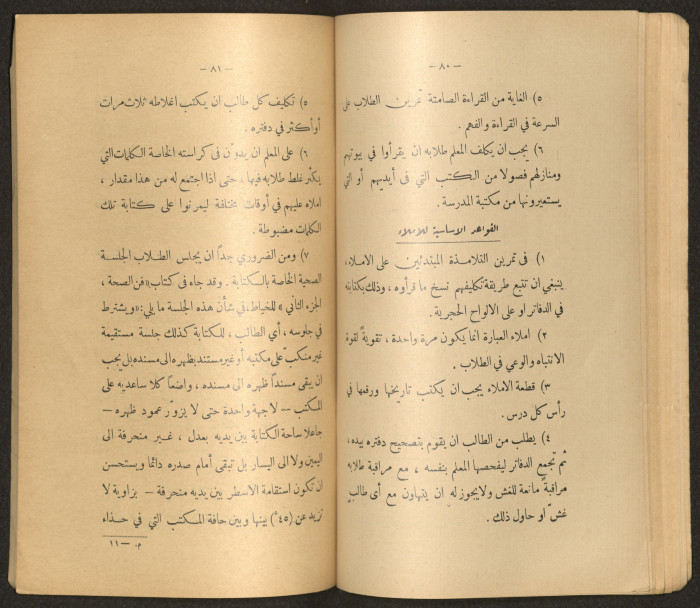 — ٨٠ —
٥) الغاية من القراءة الصامتة تمرين الطلاب على
السرعة في القراءة والفهم .
٦) يجب ان يكلف المعلم طلابه ان يقرأوا في بيوتهم
ومنازلهم فصولا من الكتب التي في أيديهم أو التي
يستعيرونها من مكتبة المدرسة .
القواعد الاساسية للاملاء
١) في تمرين التلامذة المبتدئين على الاملاء،
ينبغي ان تتبع طريقة تكليفهم نسخ ما قرأوه ، وذلك بكتابته
في الدفاتر او على الالواح الحجرية .
٢) املاء العبارة انما يكون مرة واحدة ، تقويةً لقوة
الانتباه والوعي في الطلاب .
٣) قطعة الاملاء يجب ان يكتب تاريخها ورقمها في
رأس كل درس .
٤) يطلب من الطالب ان يقوم بتصحيح دفتره بيده ،
ثم تجمع الدفاتر ليفحصها المعلم بنفسه ، مع مراقبة طلابه
مراقبةً مانعة للغش ولا يجوز له ان يتهاون مع أي طالبٍ
غشّ او حاول ذلك .
— ٨١ —
٥) تكليف كل طالب ان يكتب اغلاطه ثلاث مرات
أو أكثر في دفتره .
٦) على المعلم ان يدوّن في كراسته الخاصة الكلمات التي
يكثر غلط طلابه فيها ، حتى اذا اجتمع له من هذا مقدار ،
املاه عليهم في أوقات مختلفة ليمرنوا على كتابة تلك
الكلمات مضبوطة .
٧) ومن الضروري جداً ان يجلس الطلاب الجلسة
الصحية الخاصة بالكتابة . وقد جاء في كتاب «فن الصحة ،
الجزء الثاني » للخياط، في شأن هذه الجلسة ما يلي: «ويشترط
في جلوسه ، أي الطالب ، للكتابة كذلك جلسة مستقيمة
غير منكبّ على مكتبه أو غير مستند بظهره الى مسنده بل يجب
ان يبقى مسنداً ظهره الى مسنده ، واضعاً كلا ساعديه على
المكتب – لا جهة واحدة حتى لا يزورّ عمود ظهره –
جاعلا ساحة الكتابة بين يديه بعدل ، غير منحرفة الى
اليمين ولا الى اليسار بل تبقى أمام صدره دائما ويستحسن
ان تكون استقامة الاسطر بين يديه منحرفة – بزاوية لا
تزيد عن (٤٥°) بينها وبين حافة المكتب التي في حذاء
م. — ١١